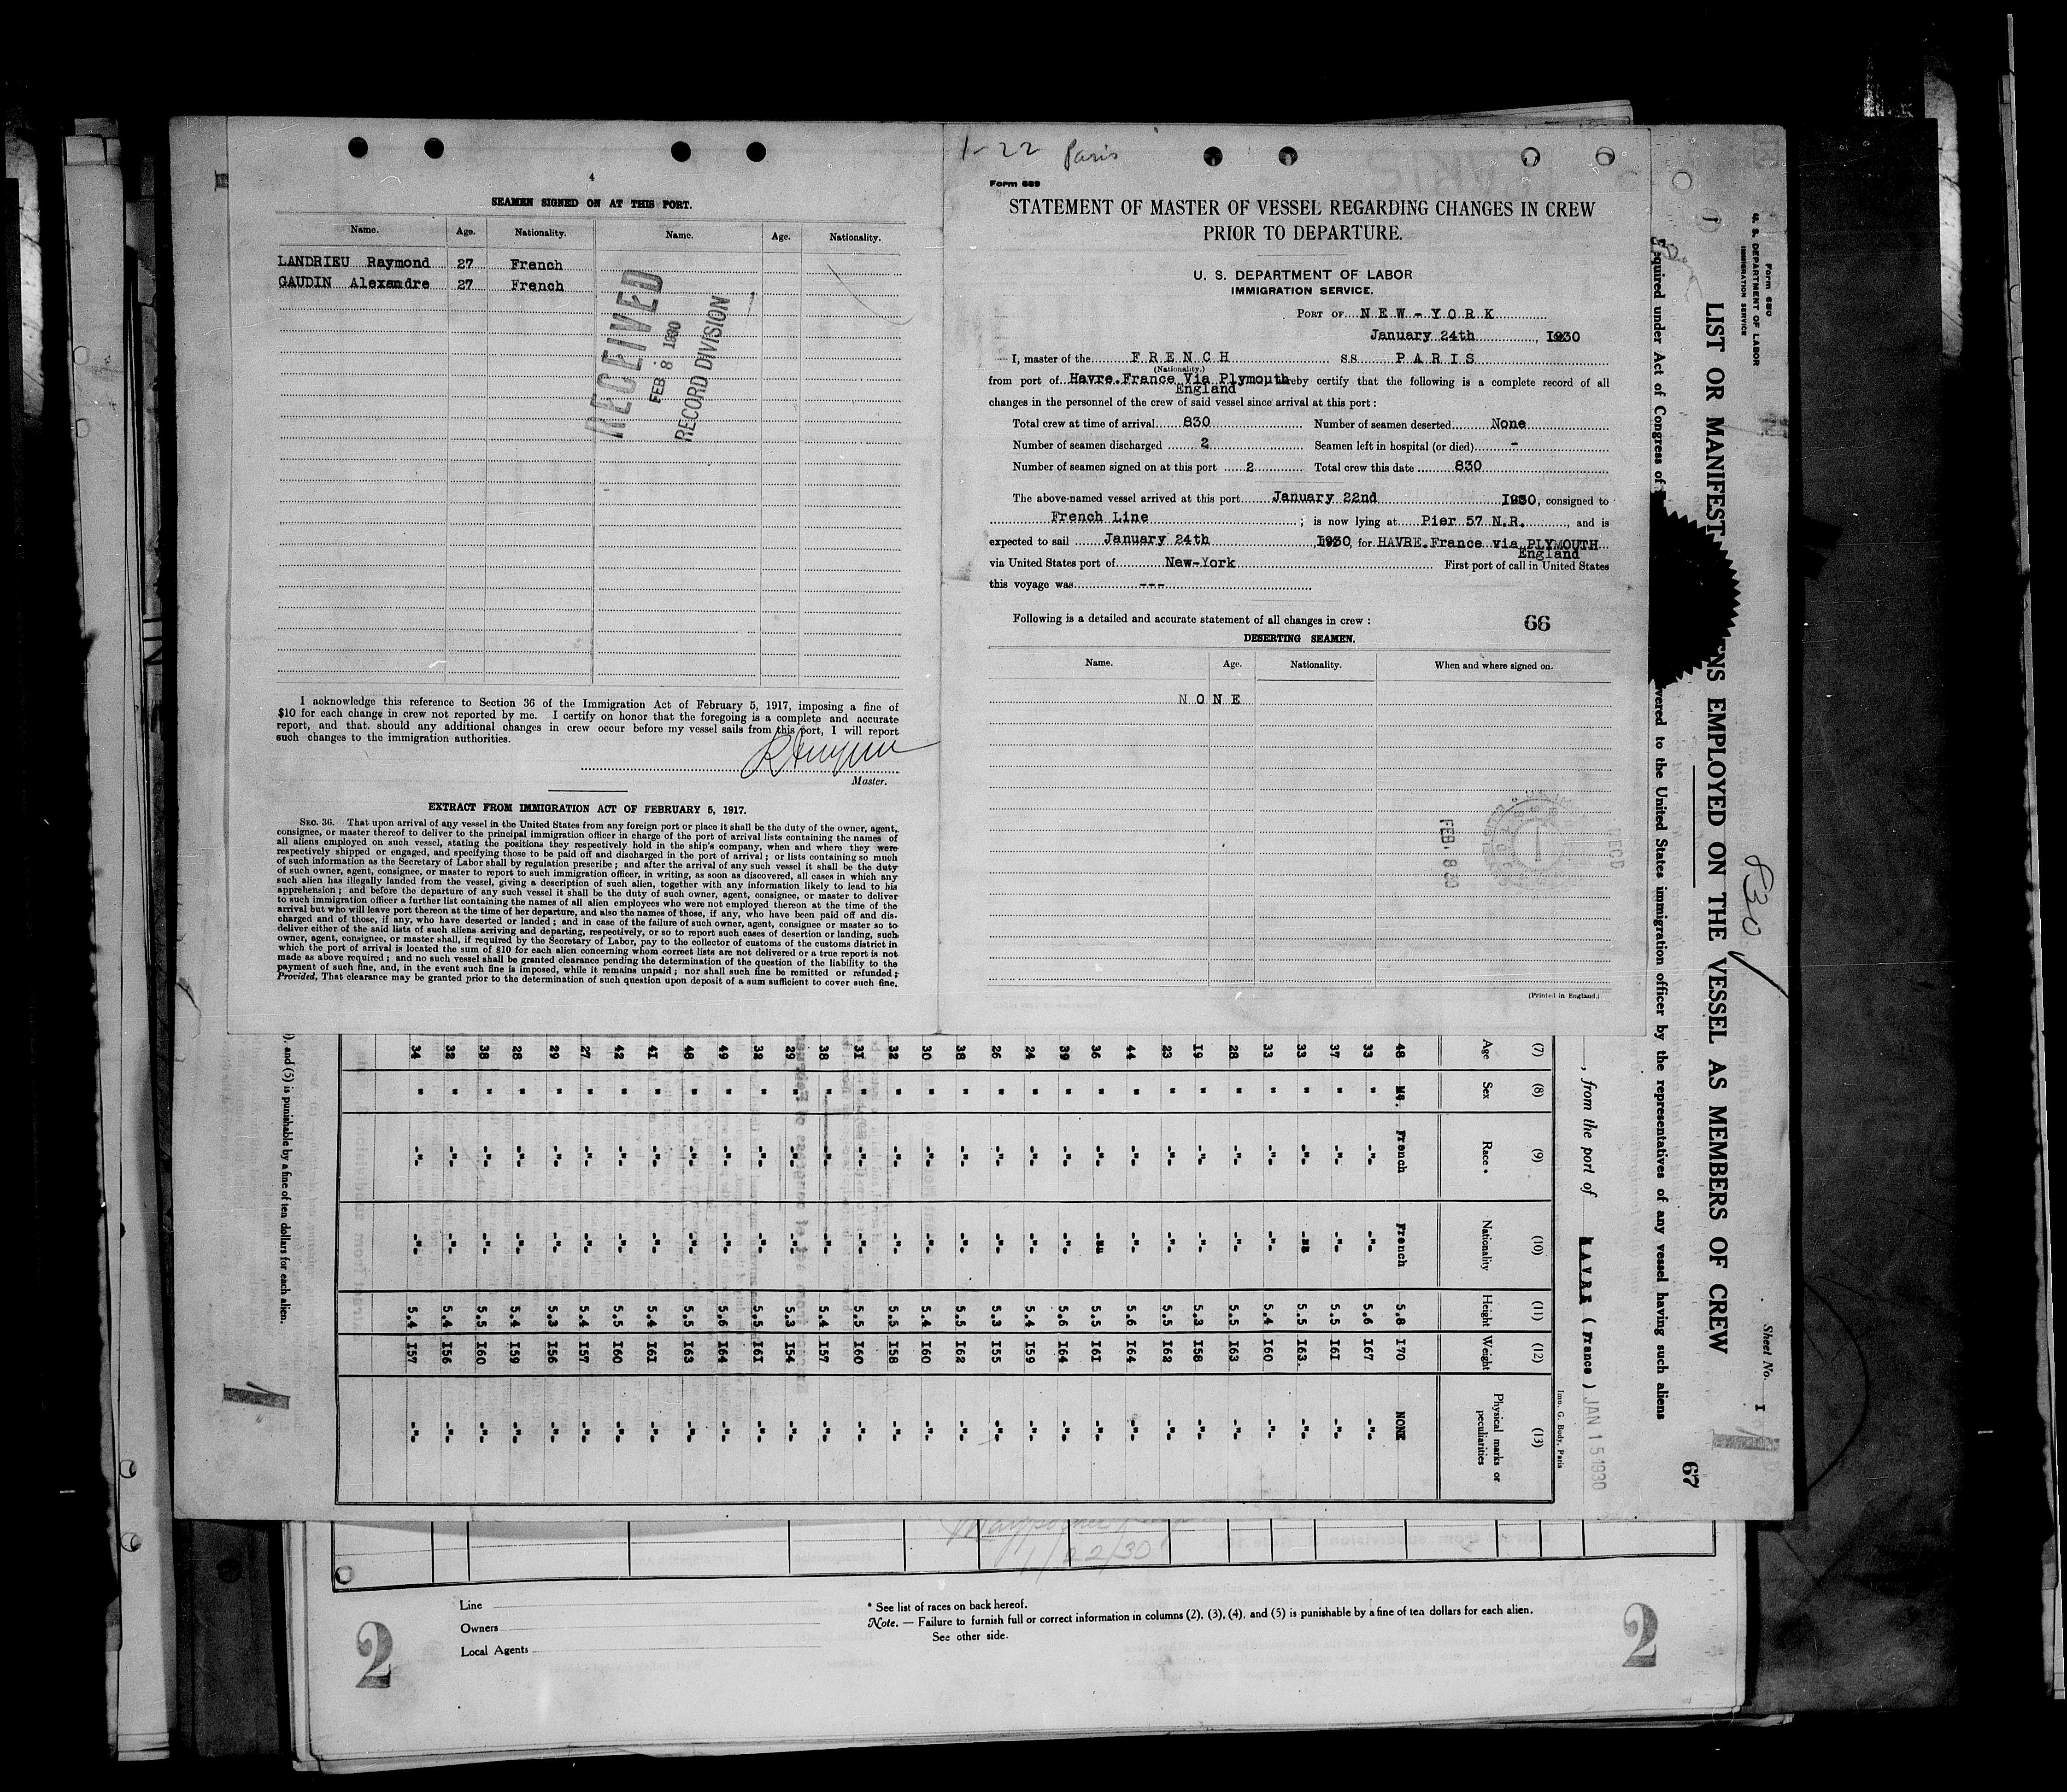 4
SEAMEN SIGNED ON AT THIS PORT.
Name. Age. Nationality. Name. Age. Nationality.
LANDRIEU Raymond 27 French
GAUDIN Alexandre 27 French
RECEIVED
FEB 8 1930
RECORD DIVISION
I acknowledge this reference to Section 36 of the Immigration Act of February 5, 1917, imposing a fine of
$10 for each change in crew not reported by me. I certify on honor that the foregoing is a complete and accurate
report, and that should any additional changes in crew occur before my vessel sails from this port, I will report
such changes to the immigration authorities.
Master.
EXTRACT FROM IMMIGRATION ACT OF FEBRUARY 5, 1917.
SEC. 36. That upon arrival of any vessel in the United States from any foreign port or place it shall be the duty of the owner, agent,
consignee, or master thereof to deliver to the principal immigration officer in charge of the port of arrival lists containing the names of
all aliens employed on such vessel, stating the positions they respectively hold in the ship's company, when and where they were
respectively shipped or engaged, and specifying those to be paid off and discharged in the port of arrival; or lists containing so much
of such information as the Secretary of Labor shall by regulation prescribe; and after the arrival of any such vessel it shall be the duty
of such owner, agent, consignee, or master to report to such immigration officer, in writing, as soon as discovered, all cases in which any
such alien has illegally landed from the vessel, giving a description of such alien, together with any information likely to lead to his
apprehension; and before the departure of any such vessel it shall be the duty of such owner, agent, consignee, or master to deliver
to such immigration officer a further list containing the names of all alien employees who were not employed thereon at the time of the
arrival but who will leave port thereon at the time of her departure, and also the names of those, if any, who have been paid off and dis-
charged and of those, if any, who have deserted or landed; and in case of the failure of such owner, agent, consignee or master so to
deliver either of the said lists of such aliens arriving and departing, respectively, or so to report such cases of desertion or landing, such
owner, agent, consignee, or master shall, if required by the Secretary of Labor, pay to the collector of customs of the customs district in
which the port of arrival is located the sum of $10 for each alien concerning whom correct lists are not delivered or a true report is not
made as above required; and no such vessel shall be granted clearance pending the determination of the question of the liability to the
payment of such fine, and, in the event such fine is imposed, while it remains unpaid; nor shall such fine be remitted or refunded;
Provided, That clearance may be granted prior to the determination of such question upon deposit of a sum sufficient to cover such fine.
1-22 Paris
Form 689
STATEMENT OF MASTER OF VESSEL REGARDING CHANGES IN CREW
PRIOR TO DEPARTURE.
U. S. DEPARTMENT OF LABOR
IMMIGRATION SERVICE.
PORT OF NEW-YORK
January 24th, I930
I, master of the FRENCH SS. PARIS
(Nationality.)
from port of Havre.France Via Plymouth hereby certify that the following is a complete record of all
England
changes in the personnel of the crew of said vessel since arrival at this port:
Total crew at time of arrival 830 Number of seamen deserted None
Number of seamen discharged 2 Seamen left in hospital (or died) -
Number of seamen signed on at this port 2 Total crew this date 830
The above-named vessel arrived at this port January 22nd I930, consigned to
French Line ; is now lying at Pier 57 N.R., and is
expected to sail January 24th, I930, for HAVRE.France via PLYMOUTH
England
via United States port of New-York First port of call in United States
this voyage was ---
Following is a detailed and accurate statement of all changes in crew: 66
DESERTING SEAMEN.
Name. Age. Nationality. When and where signed on.
NONE
FEB. 8 30
REC'D
(Printed in England.)
Form 680
U. S. DEPARTMENT OF LABOR
IMMIGRATION SERVICE
Sheet No. I
830
LIST OR MANIFEST NS EMPLOYED ON THE VESSEL AS MEMBERS OF CREW
67
Required under Act of Congress of vered to the United States immigration officer by the representatives of any vessel having such aliens
, from the port of HAVRE (France) JAN 15 1930
Imn. G. Budy, Paris
(7) (8) (9) (10) (11) (12) (13)
Age Sex Race* Nationality Height Weight Physical marks or peculiarities
48 Me. French French 5.8 I70 NONE
33 " -"- -"- 5.6 I67 -"-
37 " -"- -"- 5.5 I6I -"-
33 " -"- -"- 5.5 I63. -"-
33 " -"- -"- 5.4 I60 -"-
28 " -"- -"- 5.5 I63 -"-
I9 " -"- -"- 5.3 I58 -"-
23 " -"- -"- 5.5 I62 -"-
44 " -"- -"- 5.6 I64 -"-
36 " -"- -"- 5.5 I6I -"-
39 " -"- -"- 5.6 I64 -"-
24 " -"- -"- 5.4 I59 -"-
26 " -"- -"- 5.3 I55 -"-
38 " -"- -"- 5.5 I62 -"-
30 " -"- -"- 5.4 I60 -"-
32 " -"- -"- 5.5 I58 -"-
3I " -"- -"- 5.5 I60 -"-
38 " -"- -"- 5.4 I57 -"-
29 " -"- -"- 5.3 I54 -"-
32 " -"- -"- 5.5 I6I -"-
49 " -"- -"- 5.6 I64 -"-
48 " -"- -"- 5.5 I63 -"-
4I " -"- -"- 5.4 I6I -"-
42 " -"- -"- 5.5 I60 -"-
27 " -"- -"- 5.4 I57 -"-
29 " -"- -"- 5.3 I56 -"-
28 " -"- -"- 5.4 I59 -"-
38 " -"- -"- 5.5 I60 -"-
32 " -"- -"- 5.4 I56 -"-
34 " -"- -"- 5.4 I57 -"-
), and (5) is punishable by a fine of ten dollars for each alien.
1/22/30
Line
Owners
Local Agents
* See list of races on back hereof.
Note. — Failure to furnish full or correct information in columns (2), (3), (4), and (5) is punishable by a fine of ten dollars for each alien.
See other side.
2
2